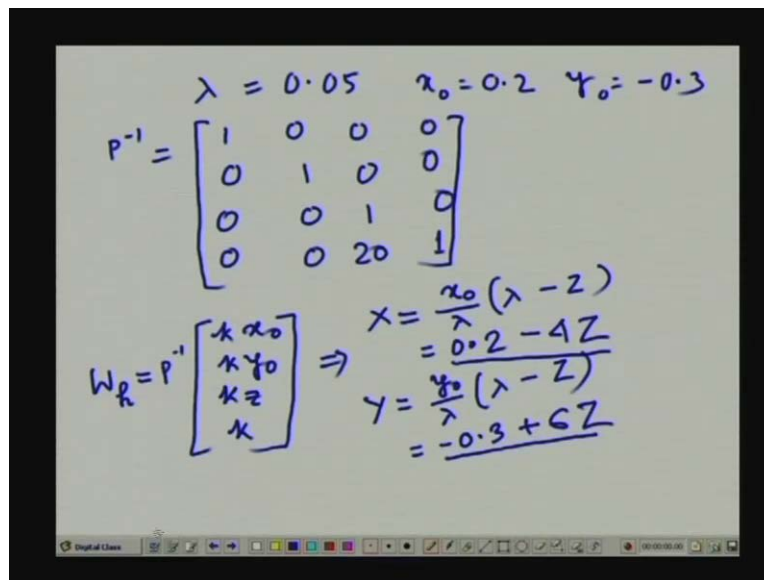 λ = 0.05 x₀ = 0.2 y₀ = -0.3
P⁻¹ = [ 1 0 0 0
0 1 0 0
0 0 1 0
0 0 20 1 ]
W_h = P⁻¹ [ k x₀
k y₀
k z
k ] ⇒
X = x₀/λ (λ - Z)
= 0.2 - 4Z
Y = y₀/λ (λ - Z)
= -0.3 + 6Z
Digital Class 00:00:00.00